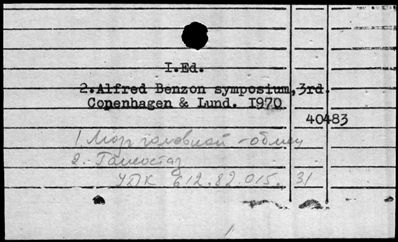 I.Ed.
2.Alfred Benzon symposium,3rd.
Copenhagen & Lund. I970
40483
1. Мозг головной - обмен
2. Гомеостаз
УДК 612.82.015.31